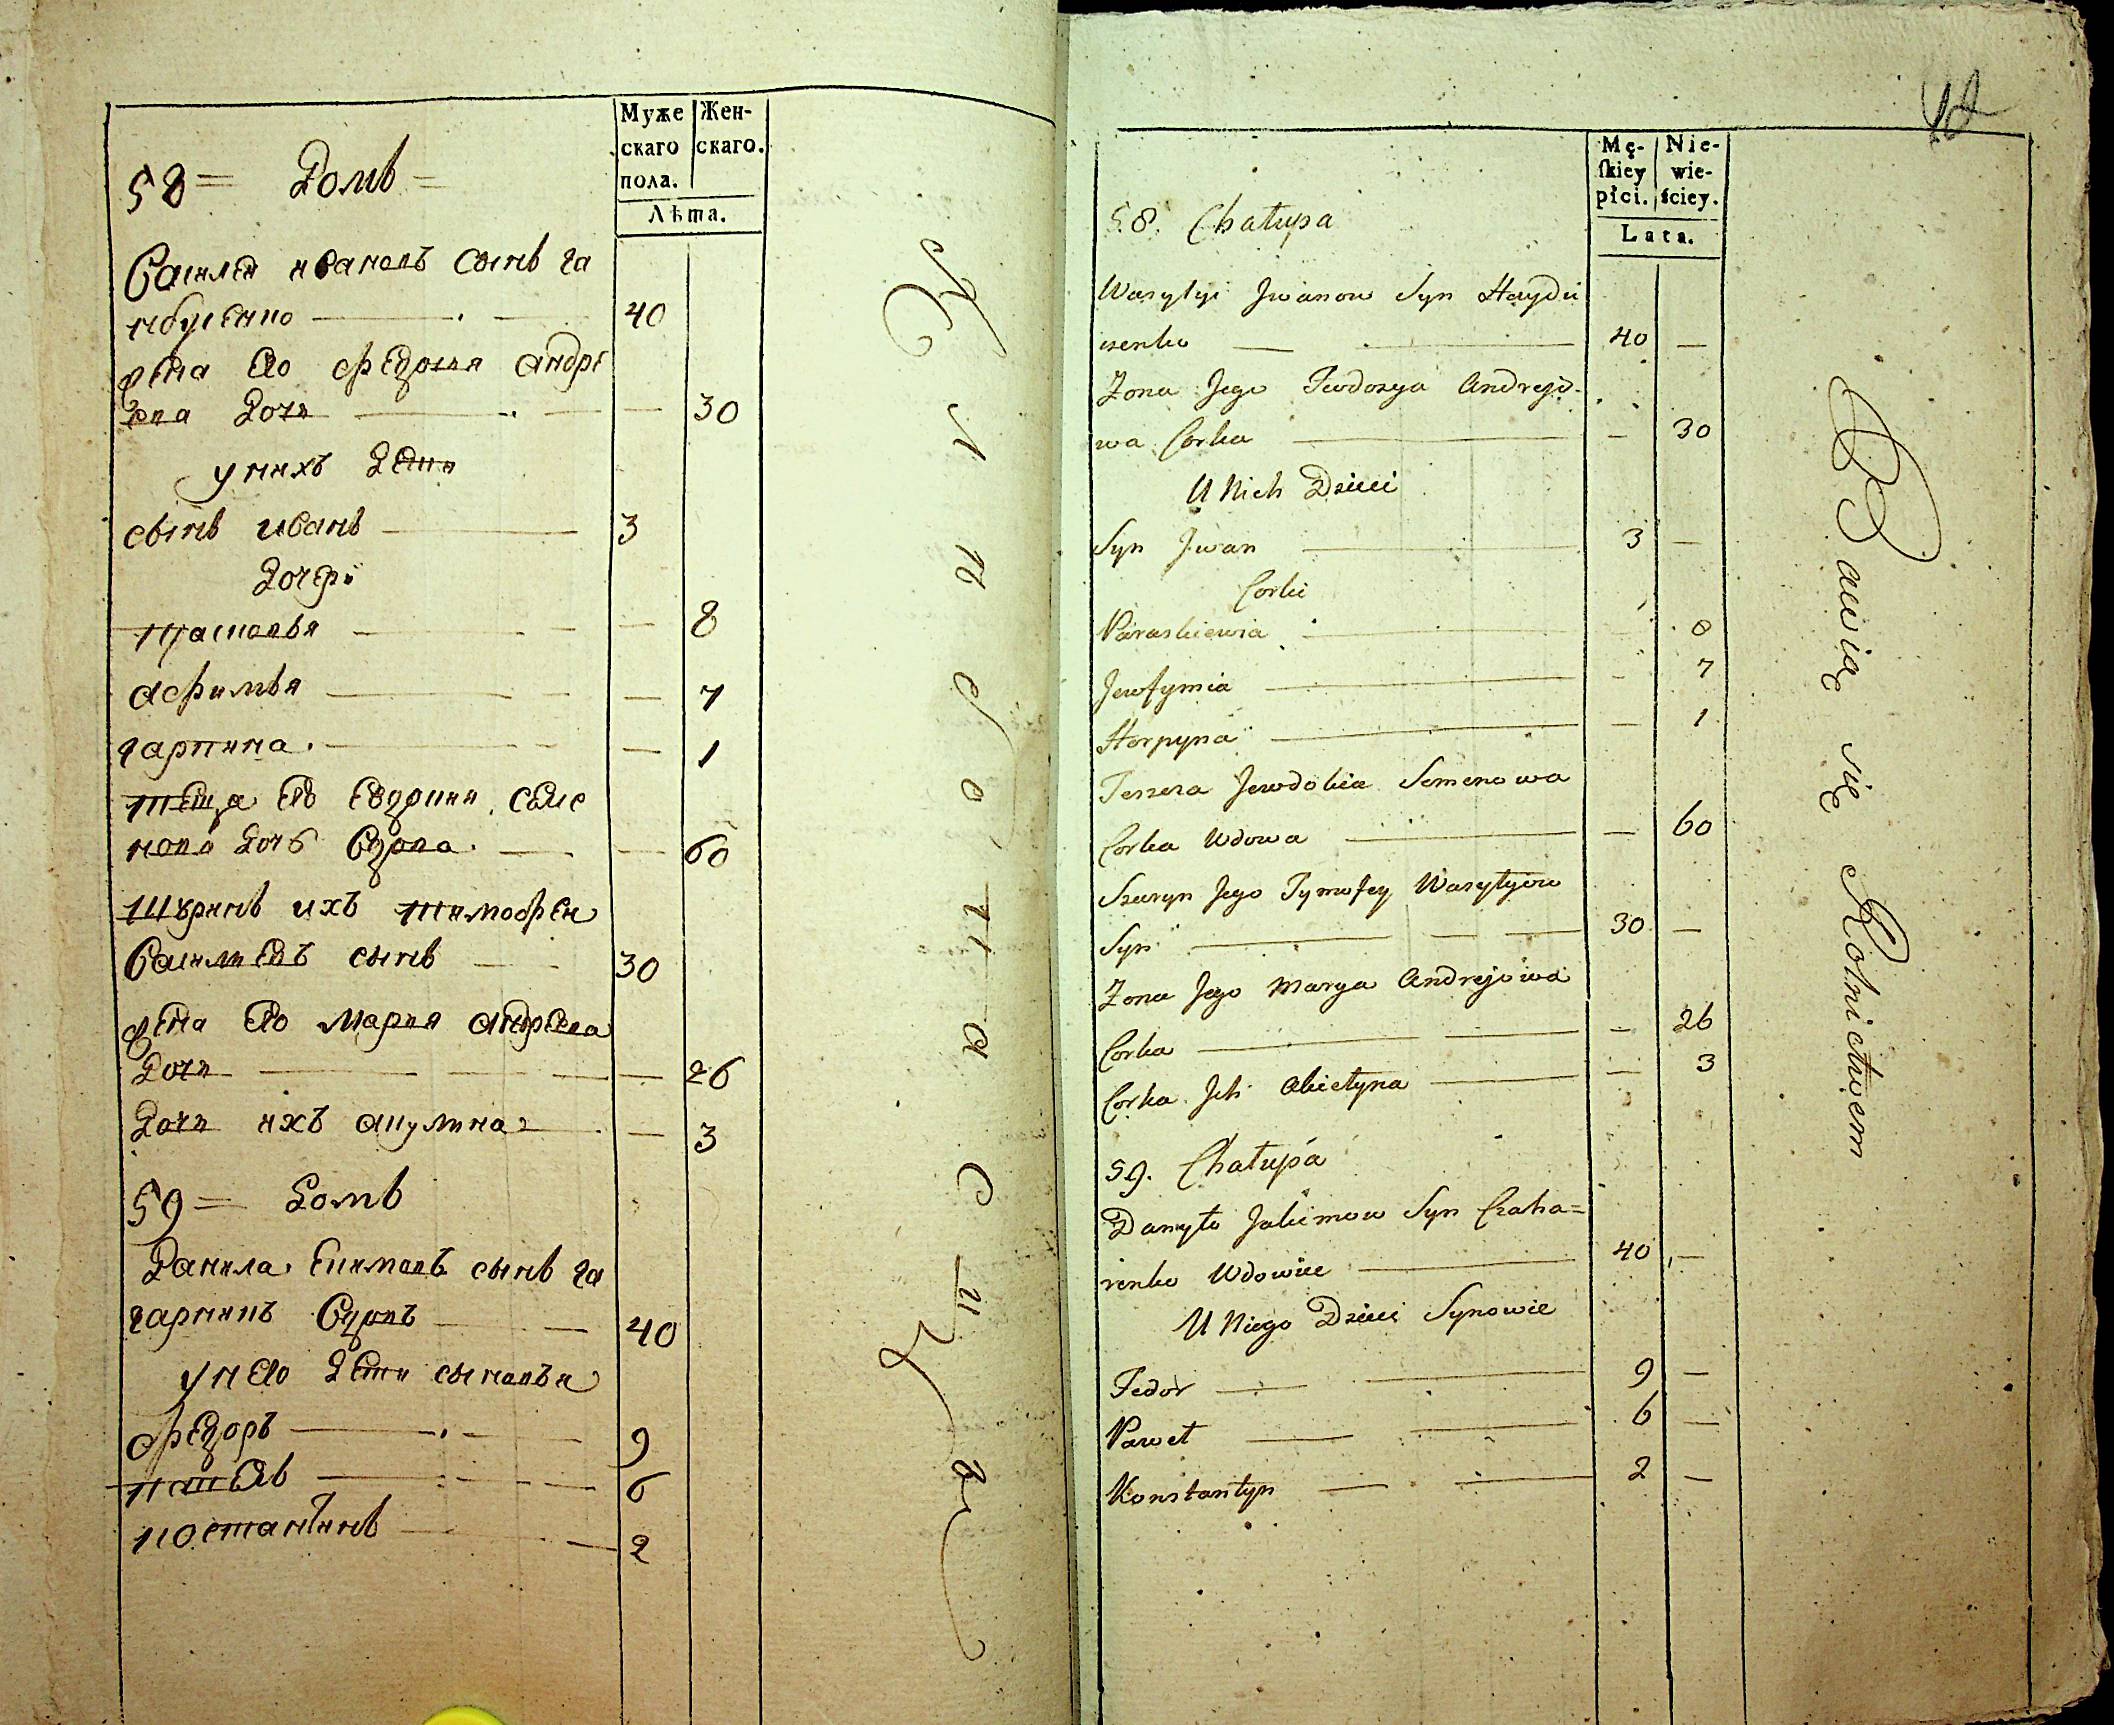 Муже
скаго
пола.
Жен-
скаго.
Лѣта.
58 = Домъ =
Василей Ивановъ сынъ га
40
жена его Федосия андре
ева дочь 30
у нихъ дети
сынъ иванъ 3
дочери
прасковья 8
афимья 7
гарпина. 1
теща его Евдокия семе
нова дочь вдова. 60
шуринъ ихъ тимофей
Васильевъ сынъ 30
жена его Мария андреева
дочь 26
дочь ихъ акулина 3
59 = Домъ
Данила Екимовъ сынъ
вдовъ 40
у него дети сыновья
Федоръ 9
павелъ 6
костантинъ 2
42
Mę-
ſkiey
płci.
Nie-
wie-
ściey.
Lata.
58. Chałupa
Wasylyi Jwanow Syn Haydu
czenko 40
Zona Jego Fewdosya Andrejo-
wa Corka 30
U Nich Dzieci
Syn Jwan 3
Corki
Paraskiewia 8
Jewfymia 7
Horpyna 1
Teszcza Jewdokia Semenowa
Corka Wdowa 60
Szuryn Jego Tymofey Wasylyow
Syn 30
Zona Jego Marya Andrejowa
Corka 26
Corka Jch Akiełyna 3
59. Chałupa
Danyło Jakimow Syn Czaha=
renko Wdowiec 40
U Niego Dzieci Synowie
Fedor 9
Paweł 6
Konstantyn 2
Bawią się Rolnictwem